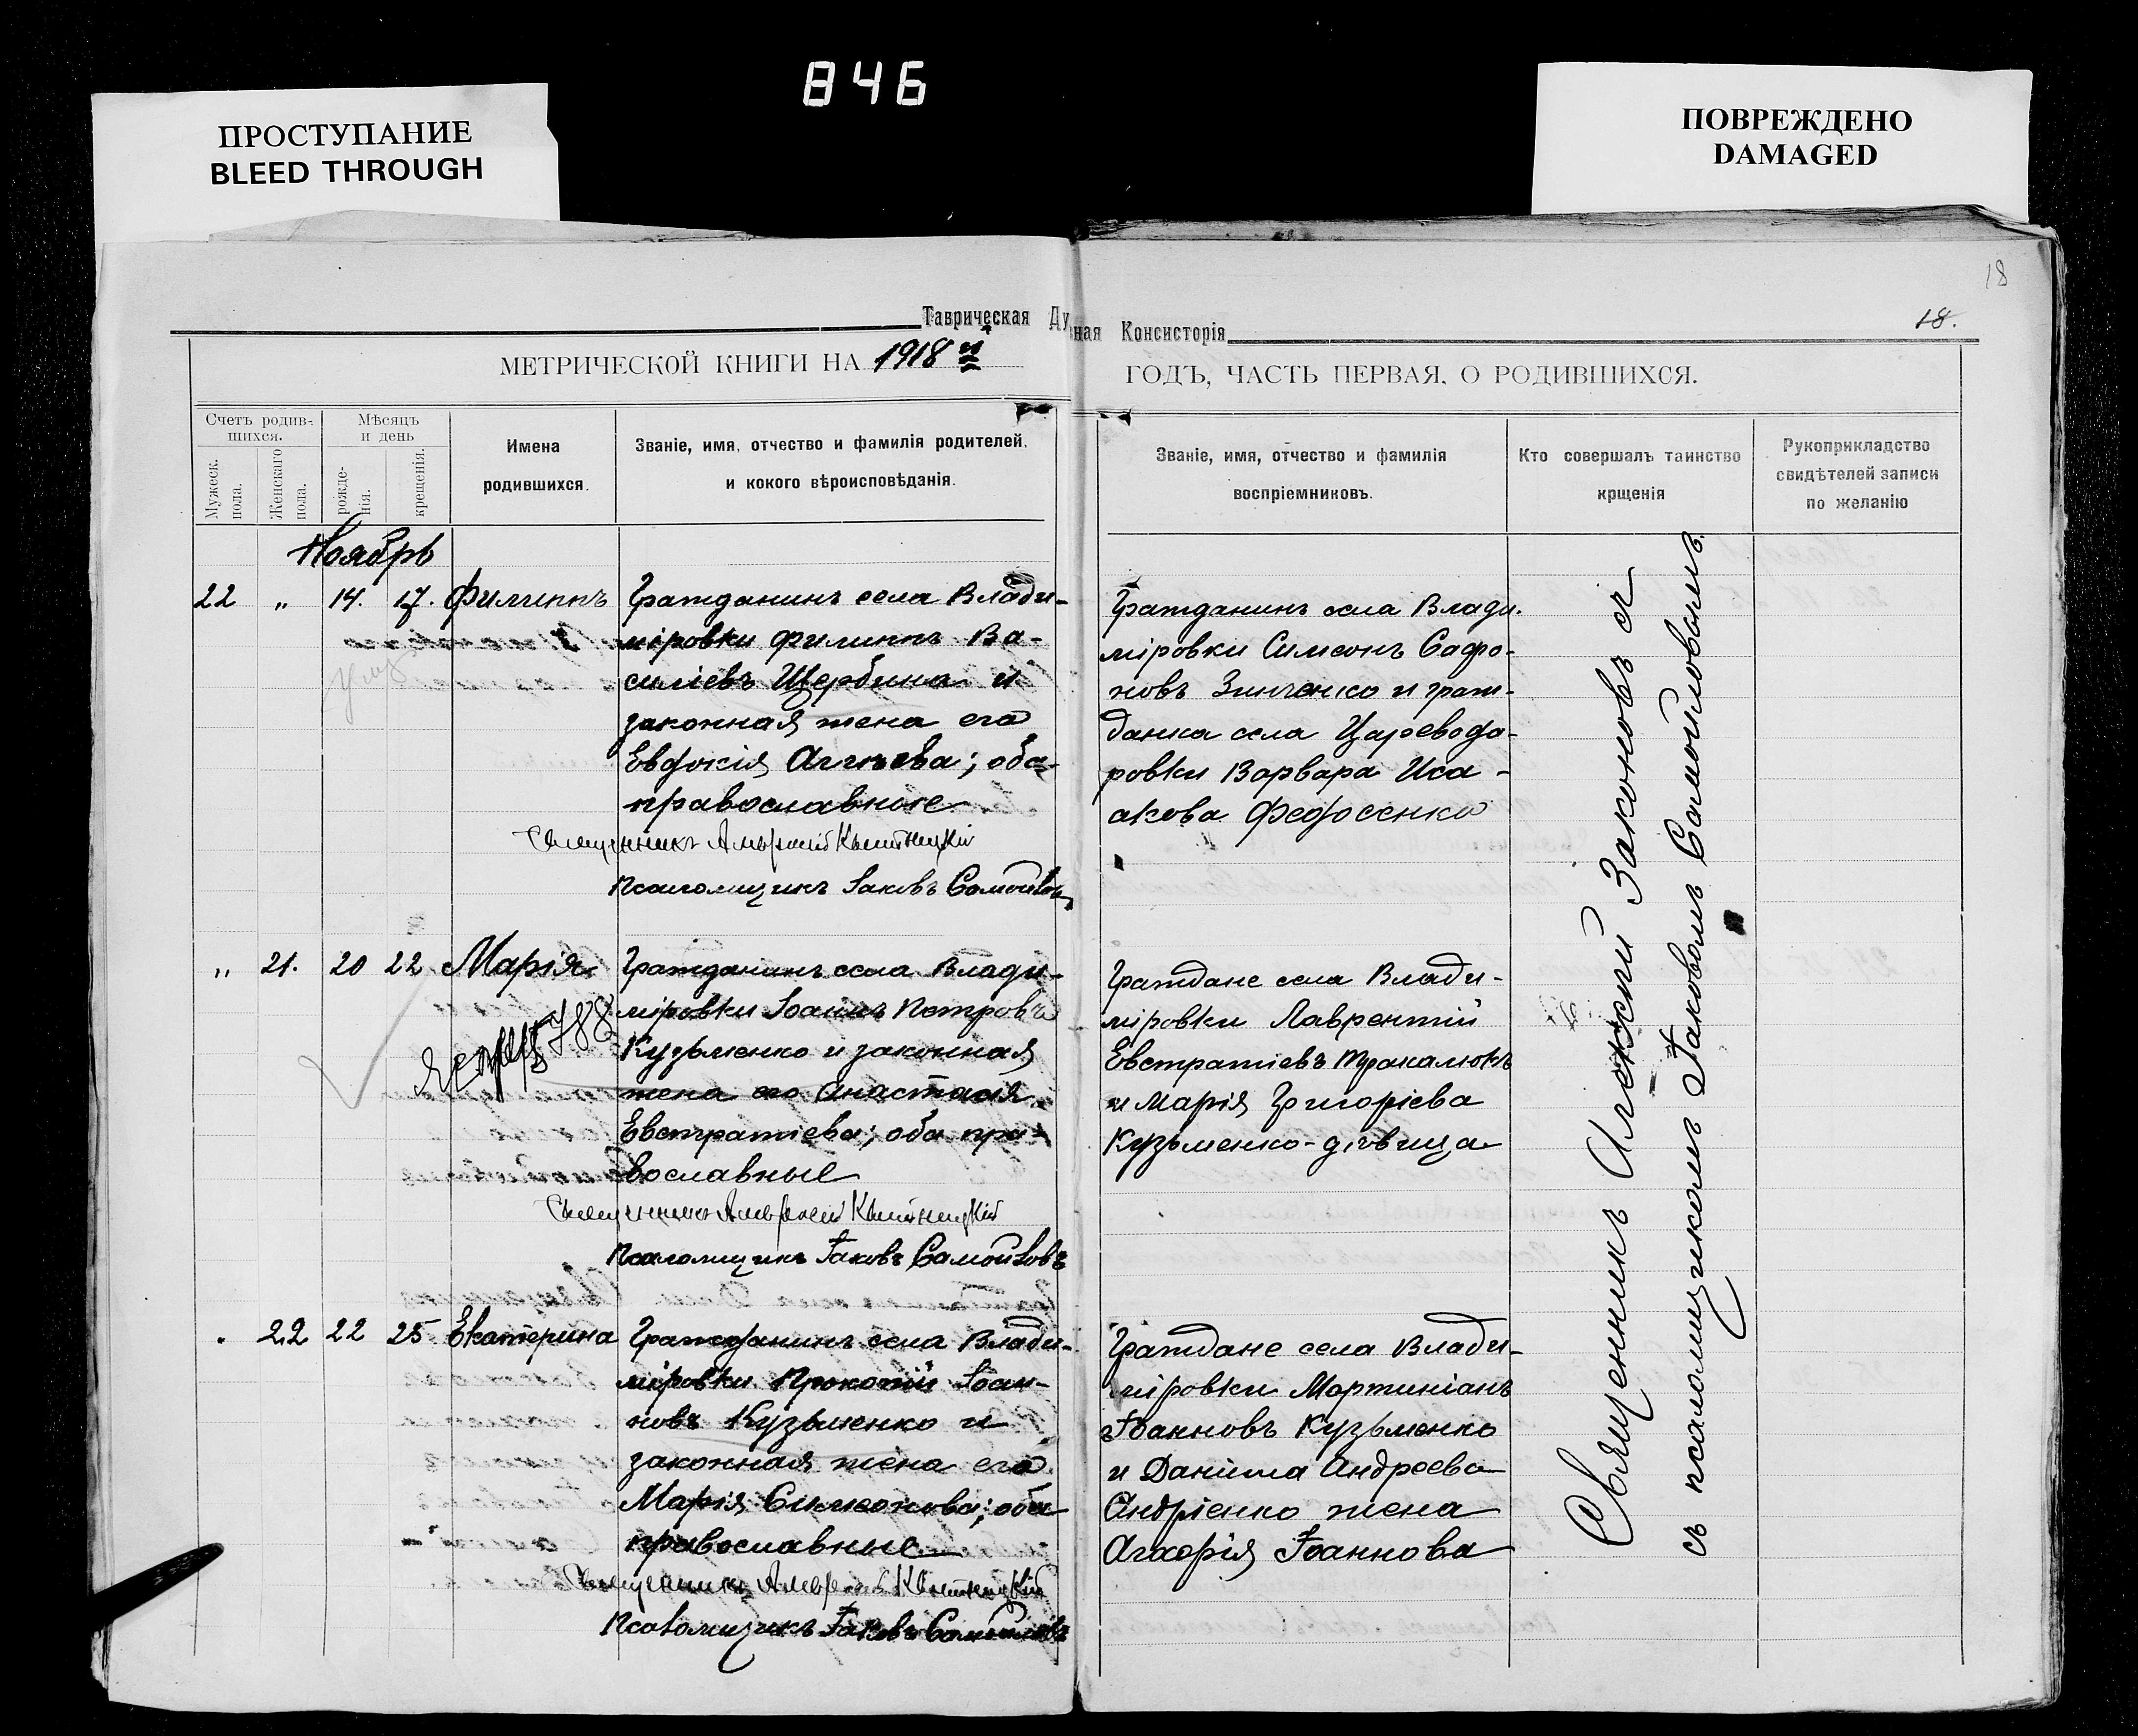 846
ПРОСТУПАНИЕ
BLEED THROUGH
ПОВРЕЖДЕНО
DAMAGED
18
18.
Таврическая Ду
ная Консисторія
МЕТРИЧЕСКОЙ КНИГИ НА 1918 й
ГОДЪ, ЧАСТЬ ПЕРВАЯ, О РОДИВШИХСЯ.
Счетъ родив-
шихся.
Мужеск.
пола.
Женскаго
пола.
Мѣсяцъ
и день
рожде-
нія.
крещенія.
Имена
родившихся.
Званіе, имя, отчество и фамилія родителей,
и кокого вѣроисповѣданія.
Званіе, имя, отчество и фамилія
воспріемниковъ.
Кто совершалъ таинство
крщенія
Рукоприкладство
свидѣтелей записи
по желанію
Ноябрь
22 " 14. 17. Филиппъ
Гражданинъ села Влади-
міровки Филиппъ Ва-
силіевъ Щербина и
законная жена его
Евдокія Аггѣева; оба
православные
Священникъ
Псаломщикъ Іаковъ Самойловъ
Гражданинъ села Влади-
міровки Симеонъ Сафро-
новъ Зинченко и граж-
данка села Царевода-
ровки Варвара Иса-
акова Федосенко
" 21. 20 22 Марія
788
Гражданинъ села Влади-
міровки Іоаннъ Петровъ
Кузьменко и законная
жена его Анастасія
Евстратіева; оба пра-
вославные
Священникъ
Псаломщикъ Іаковъ Самойловъ
Граждане села Влади-
міровки Лаврентій
Евстратіевъ
и Марія Григоріева
Кузьменко-дѣвица
22 22 25 Екатерина
Гражданинъ села Влади-
міровки Прокопій Іоан-
новъ Кузьменко и
законная жена его
Марія Симеонова; оба
православные
Священникъ
Псаломщикъ Іаковъ Самойловъ
Граждане села Влади-
міровки Мартиніанъ
Іоанновъ Кузьменко
и Даніила Андреева
Андріенко жена
Агафія Іоаннова
Священникъ Алексій Законовъ съ
съ псаломщикомъ Іаковомъ Самойловомъ.